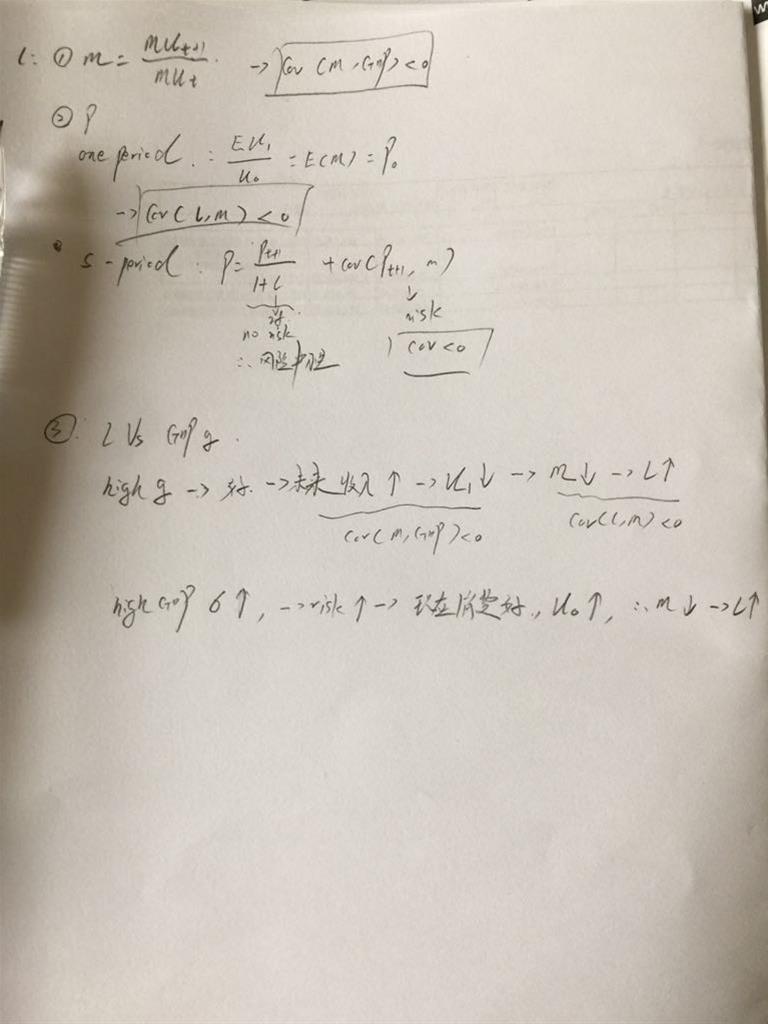 l: ① m = MU_{t+1} / MU_t → Cov (m, GDP) < 0
② P
one period : EU₁ / U₀ = E(m) = P₀
→ Cov (l, m) < 0
s - period : P = P_{t+1} / 1+l + cov(P_{t+1}, m)
↓ risk
no risk
∴ 风险中性 cov < 0
③: l Vs GDP g.
high g → 好. → 未来 收入 ↑ → U₁ ↓ → m ↓ → l ↑
Cov(m, GDP) < 0 Cov(l, m) < 0
high GDP σ ↑, → risk ↑ → 现在消费好, U₀ ↑, ∴ m ↓ → l ↑